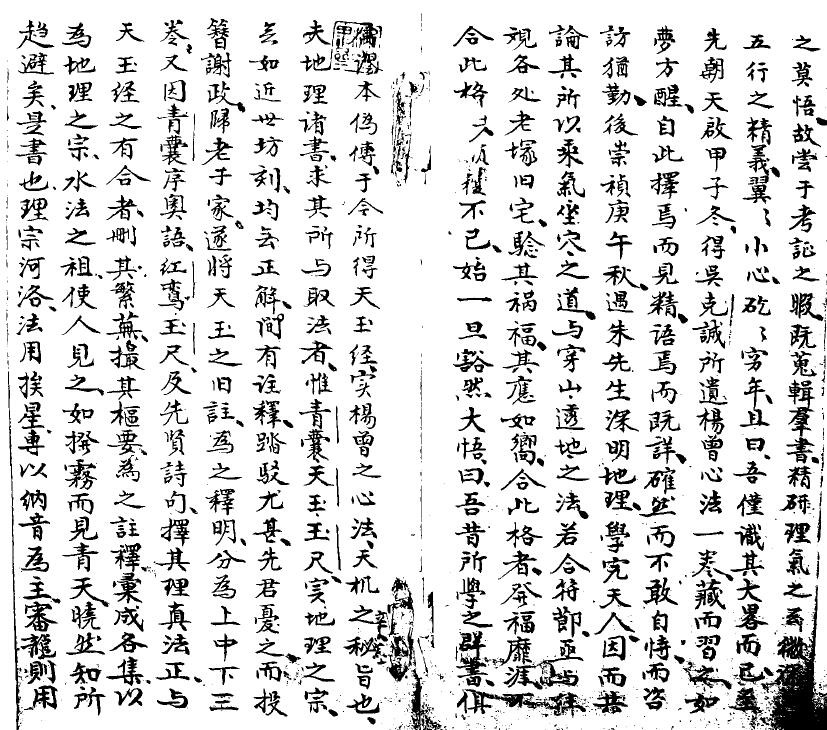 之莫悟故嘗于考証之暇既蒐輯羣書精研理氣之玄微
五行之精義翼〻小心矻〻穷年且曰吾僅識其大畧而已至
先朝天啟甲子冬得吳克誠所遺楊曾心法一巻藏而習之如
夢方醒自此擇焉而見精語焉而既詳確然而不敢自恃而咨
訪猶勤後崇禎庚午秋遇朱先生深明地理學究天人因而共
論其所以乘氣坐穴之道与穿山透地之法若合符節亟与
覌各处老塚旧宅騐其祸福其應如嚮合此格者發福靡涯不
合此格 不已始一旦豁然大悟曰吾昔所學之群書俱
本偽傳于今所得天玉经实楊曾之心法天机之秘旨也
夫地理诸書求其所与取法者惟青囊天玉玉尺实地理之宗
玄如近世坊刻均玄正解间有诠釋踏駁尤甚先君憂之而投
簪謝政歸老于家遂将天玉之旧註為之释明分為上中下三
巻又因青囊序奧語红鸾玉尺及先贤詩句擇其理真法正与
天玉经之有合者刪其繁蕪撮其樞要為之註釋彙成各集以
為地理之宗水法之祖使人見之如撥霧而見青天曉然知所
趋避矣是書也理宗河洛法用挨星専以纳音為主審龍則用